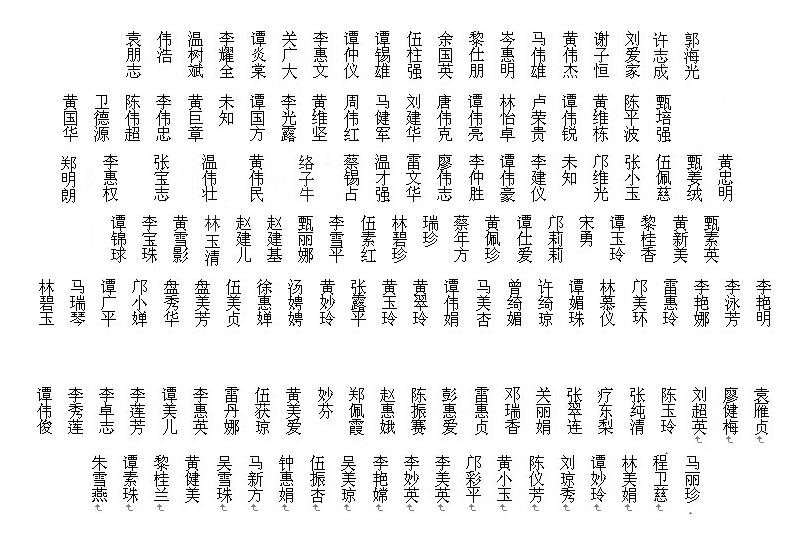 袁朋志 伟浩 温树斌 李耀全 谭炎棠 关广大 李惠文 谭仲仪 谭锡雄 伍柱强 余国英 黎仕朋 岑惠明 马伟雄 黄伟杰 谢子恒 刘爱家 许志成 郭海光
黄国华 卫德源 陈伟超 李伟忠 黄巨章 未知 谭国方 李光露 黄维坚 周伟红 马健军 刘建华 唐伟克 谭伟亮 林怡卓 卢荣贵 谭伟锐 黄维栋 陈平波 甄培强
郑明朗 李惠权 张宝志 温伟壮 黄伟民 络子牛 蔡锡占 温才强 雷文华 廖伟志 李仲胜 谭伟豪 李建仪 未知 邝维光 张小玉 伍佩慈 甄姜绒 黄忠明
谭锦球 李宝珠 黄雪影 林玉清 赵建儿 赵建基 甄丽娜 李雪平 伍素红 林碧珍 瑞珍 蔡年方 黄佩珍 谭仕爱 邝莉莉 宋勇 谭玉玲 黎桂香 黄新美 甄素英
林碧玉 马瑞琴 谭广平 邝小婵 盘秀华 盘美芳 伍美贞 徐惠婵 汤娉娉 黄妙玲 张露平 黄玉玲 黄翠玲 谭伟娟 马美杏 曾绮媚 许绮琼 谭媚珠 林慕仪 邝美环 雷惠玲 李艳娜 李泳芳 李艳明
谭伟俊 李秀莲 李卓志 李莲芳 谭美儿 李惠英 雷丹娜 伍获琼 黄美爱 妙芬 郑佩霞 赵惠娥 陈振赛 彭惠爱 雷惠贞 邓瑞香 关丽娟 张翠连 疗东梨 张纯清 陈玉玲 刘超英 廖健梅 袁雁贞
朱雪燕 谭素珠 黎桂兰 黄健美 吴雪珠 马新方 钟惠娟 伍振杏 吴美琼 李艳嫦 李妙英 李美英 邝彩平 黄小玉 陈仪芳 刘琼秀 谭妙玲 林美娟 程卫慈 马丽珍